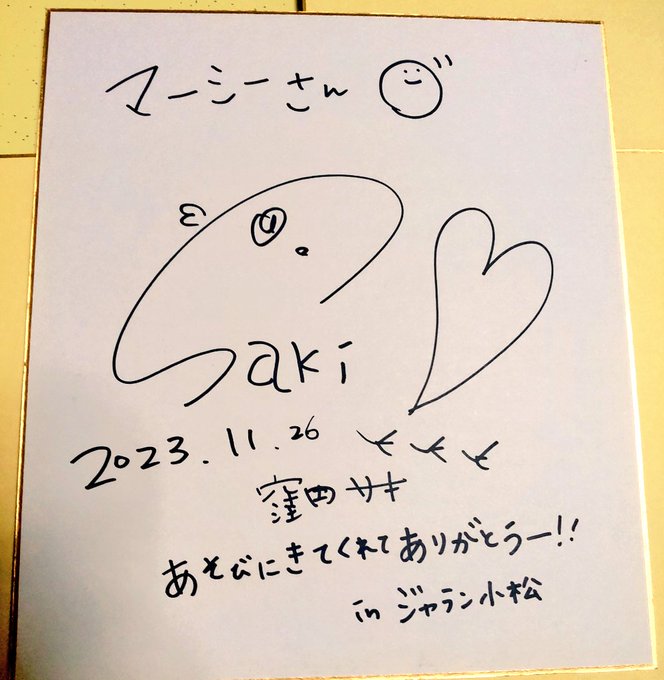 マーシーさん
Saki
2023.11.26
窪田サキ
あそびにきてくれてありがとうー!!
in ジャラン小松